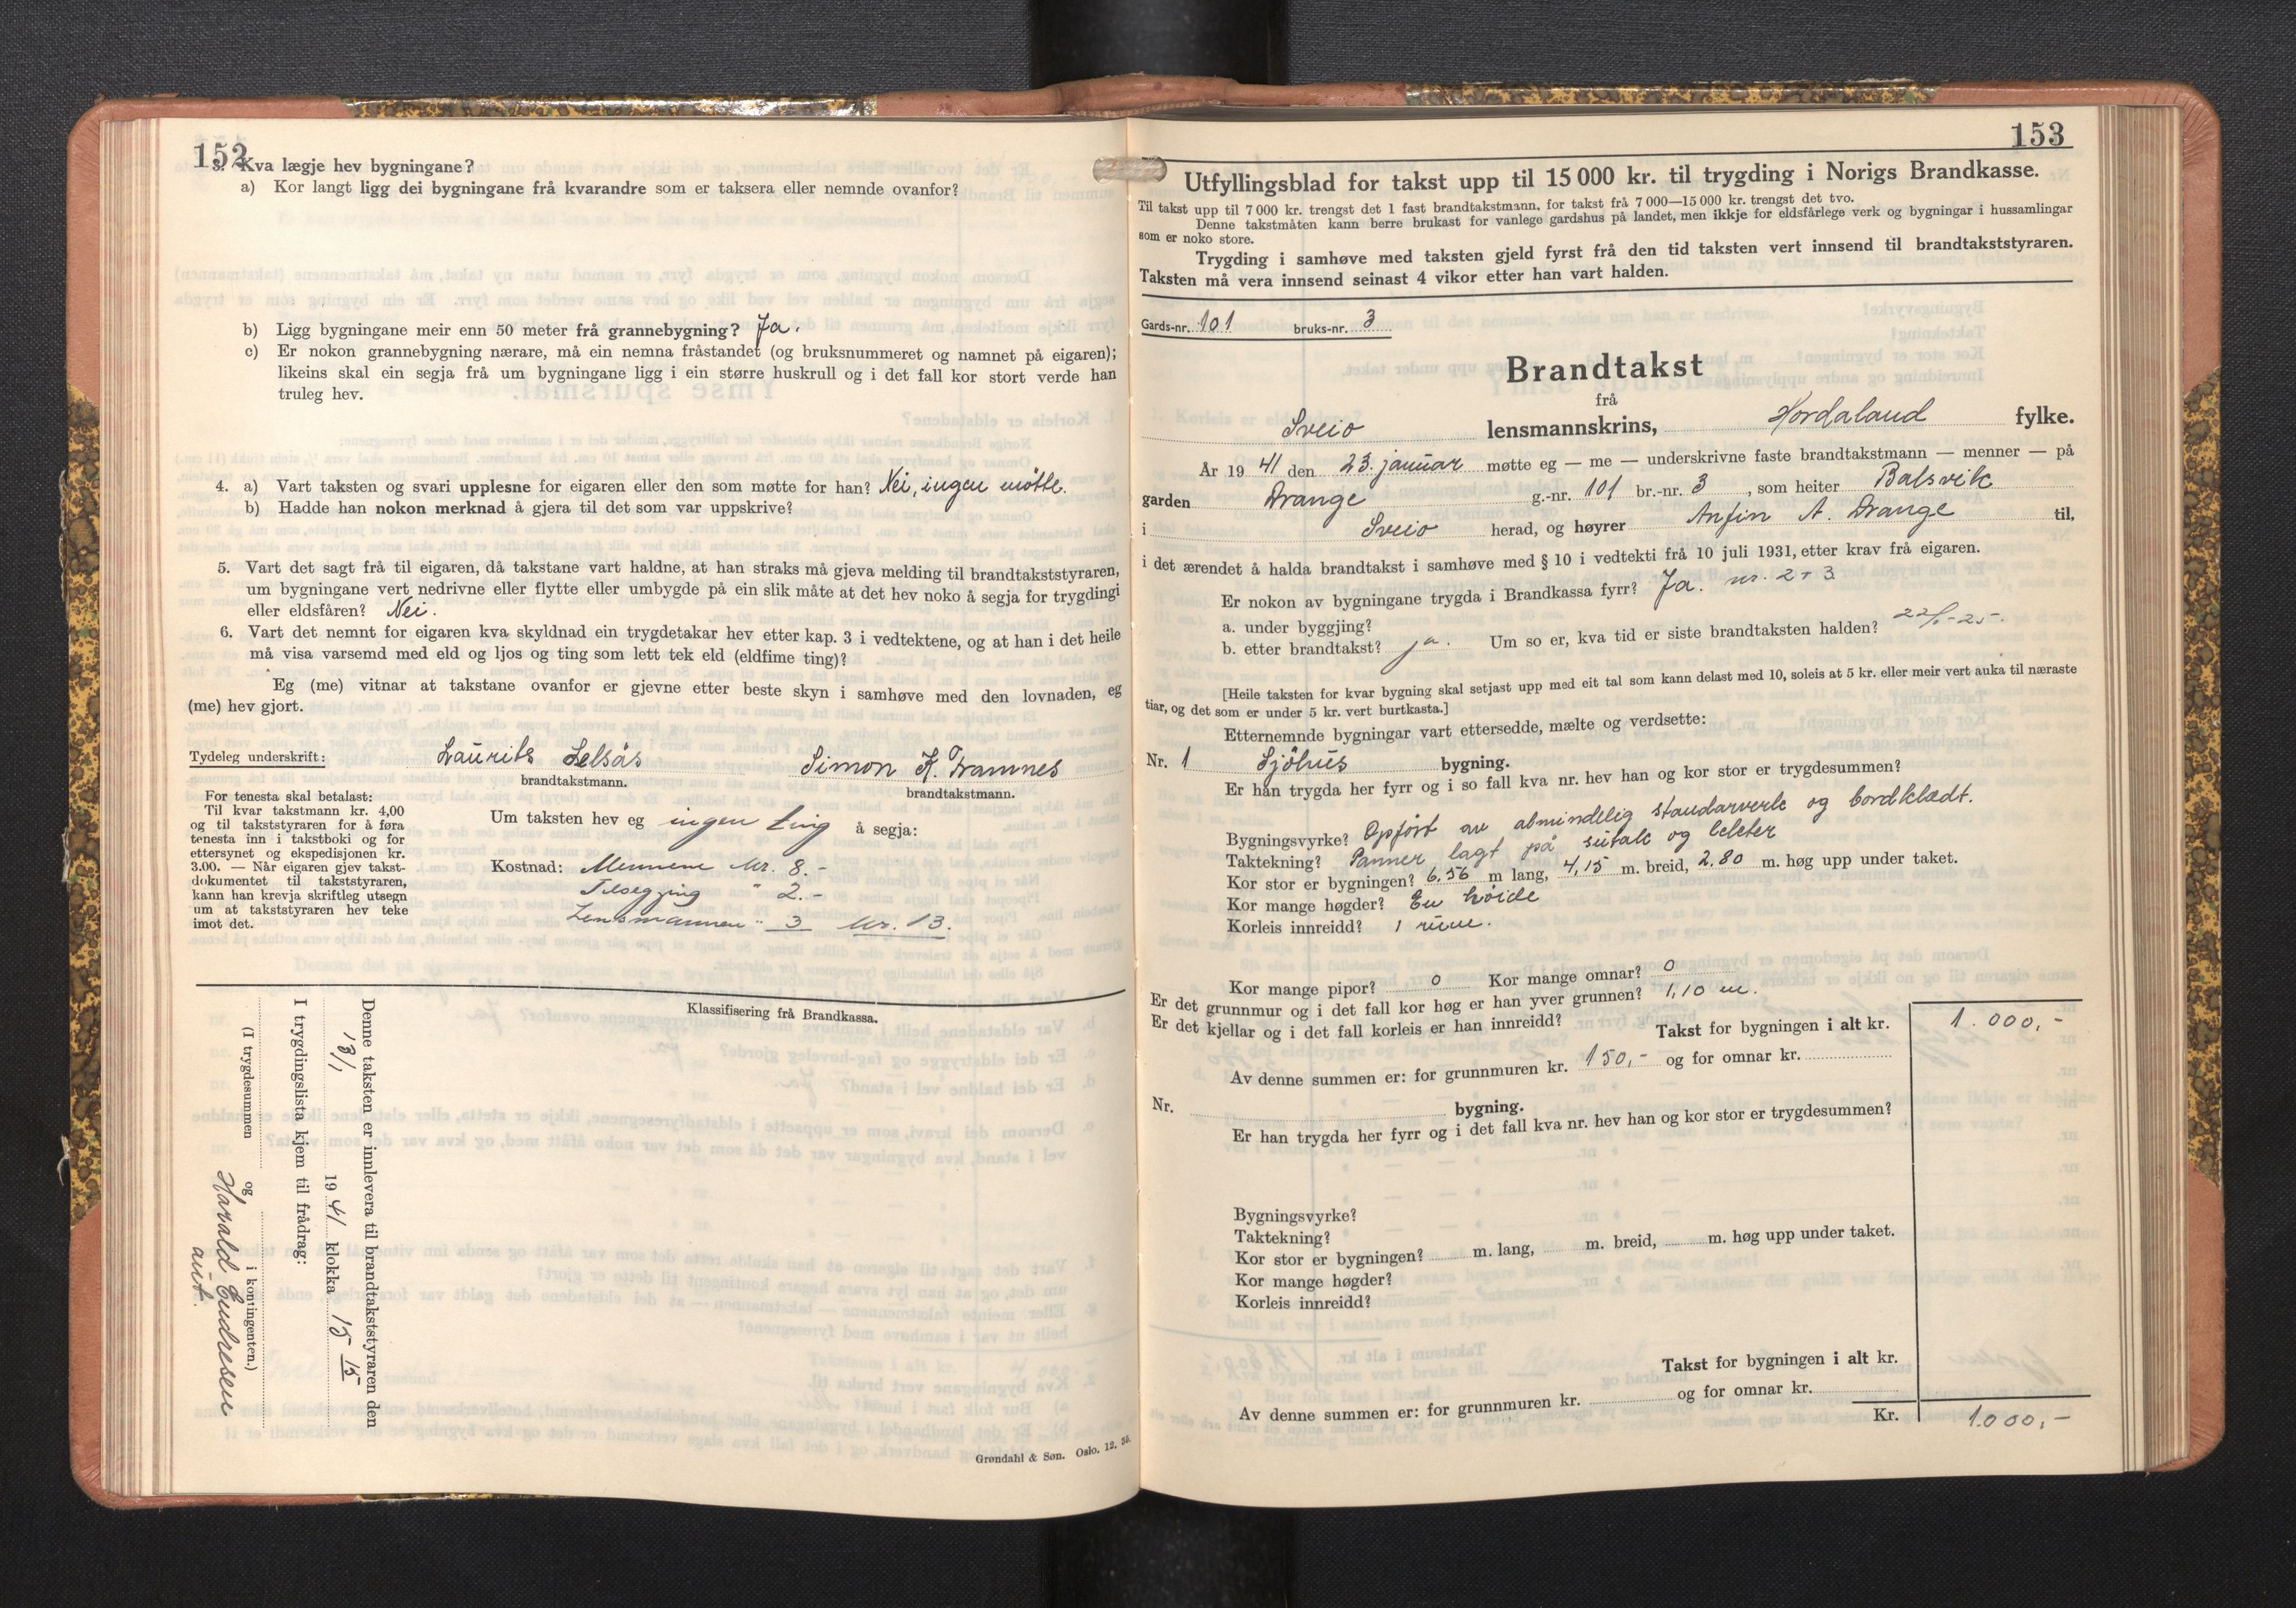 152
3. Kva lægje hev bygningane?
a) Kor langt ligg dei bygningane frå kvarandre som er taksera eller nemnde ovanfor?
b) Ligg bygningane meir enn 50 meter frå grannebygning? Ja.
c) Er nokon grannebygning nærare, må ein nemna fråstandet (og bruksnummeret og namnet på eigaren);
likeins skal ein segja frå um bygningane ligg i ein større huskrull og i det fall kor stort verde han
truleg hev.
4. a) Vart taksten og svari upplesne for eigaren eller den som møtte for han? Nei, ingen møtte.
b) Hadde han nokon merknad å gjera til det som var uppskrive?
5. Vart det sagt frå til eigaren, då takstane vart haldne, at han straks må gjeva melding til brandtakststyraren,
um bygningane vert nedrivne eller flytte eller umbygde på ein slik måte at det hev noko å segja for trygdingi
eller eldsfåren? Nei.
6. Vart det nemnt for eigaren kva skyldnad ein trygdetakar hev etter kap. 3 i vedtektene, og at han i det heile
må visa varsemd med eld og ljos og ting som lett tek eld (eldfime ting)?
Eg (me) vitnar at takstane ovanfor er gjevne etter beste skyn i samhøve med den lovnaden, eg
(me) hev gjort.
Tydeleg underskrift: Laurits Lelsås Simon K. Framnes
brandtakstmann. brandtakstmann.
For tenesta skal betalast:
Til kvar takstmann kr. 4,00
og til takststyraren for å føra
tenesta inn i takstboki og for
ettersynet og ekspedisjonen kr.
3.00. — Når eigaren gjev takst-
dokumentet til takststyraren,
kann han krevja skriftleg utsegn
um at takststyraren hev teke
imot det.
Um taksten hev eg ingen ting å segja:
Kostnad: Mennene kr. 8.-
Tilsegging " 2.-
Lensmannen " 3 kr. 13.
Klassifisering frå Brandkassa.
Denne taksten er innlevera til brandtakststyraren den
1941 klokka 15 15
I trygdingslista kjem til frådrag:
(I trygdesummen og i kontingenten.)
Harald Eudresen
ass.
Grøndahl & Søn. Oslo. 12. 38.
153
Utfyllingsblad for takst upp til 15 000 kr. til trygding i Norigs Brandkasse.
Til takst upp til 7 000 kr. trengst det 1 fast brandtakstmann, for takst frå 7 000—15 000 kr. trengst det tvo.
Denne takstmåten kann berre brukast for vanlege gardshus på landet, men ikkje for eldsfårlege verk og bygningar i hussamlingar
som er noko store.
Trygding i samhøve med taksten gjeld fyrst frå den tid taksten vert innsend til brandtakststyraren.
Taksten må vera innsend seinast 4 vikor etter han vart halden.
Gards-nr. 101 bruks-nr. 3
Brandtakst
frå
Sveio lensmannskrins, Hordaland fylke.
År 1941 den 23. januar møtte eg — me — underskrivne faste brandtakstmann — menner — på
garden Drange g.-nr. 101 br.-nr. 3, som heiter Balsvik
i Sveio herad, og høyrer Anfin A. Drange til,
i det ærendet å halda brandtakst i samhøve med § 10 i vedtekti frå 10 juli 1931, etter krav frå eigaren.
Er nokon av bygningane trygda i Brandkassa fyrr? Ja. nr. 2 + 3
a. under byggjing?
b. etter brandtakst? ja. Um so er, kva tid er siste brandtaksten halden?
[Heile taksten for kvar bygning skal setjast upp med eit tal som kann delast med 10, soleis at 5 kr. eller meir vert auka til næraste
tiar, og det som er under 5 kr. vert burtkasta.]
Etternemnde bygningar vart ettersedde, mælte og verdsette:
Nr. 1 Sjöhus bygning.
Er han trygda her fyrr og i so fall kva nr. hev han og kor stor er trygdesummen?
Bygningsvyrke? Opfört av almindelig standarverk og bordklædt.
Taktekning? Panner lagt på sutak og lekter
Kor stor er bygningen? 6,56 m lang, 4,15 m. breid, 2,80 m. høg upp under taket.
Kor mange høgder? En höide
Korleis innreidd? 1 rum.
Kor mange pipor? 0 Kor mange omnar? 0
Er det grunnmur og i det fall kor høg er han yver grunnen? 1,10 m.
Er det kjellar og i det fall korleis er han innreidd?
Takst for bygningen i alt kr. 1.000,-
Av denne summen er: for grunnmuren kr. 150,- og for omnar kr.
Nr. bygning.
Er han trygda her fyrr og i det fall kva nr. hev han og kor stor er trygdesummen?
Bygningsvyrke?
Taktekning?
Kor stor er bygningen? m. lang, m. breid, m. høg upp under taket.
Kor mange høgder?
Korleis innreidd?
Takst for bygningen i alt kr.
Av denne summen er: for grunnmuren kr. og for omnar kr.
Kr. 1.000,-